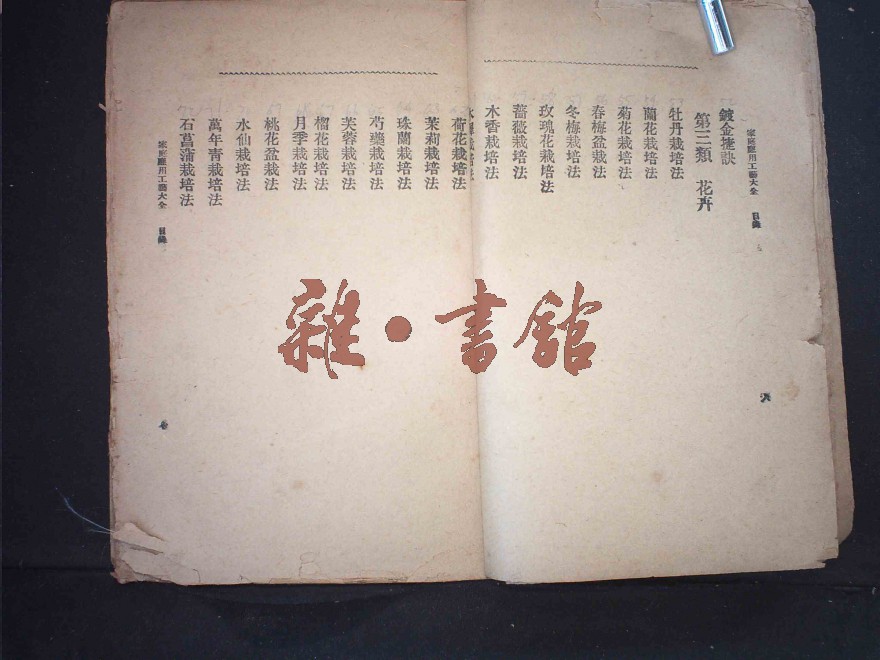 家庭應用工藝大全 目錄
鍍金捷訣
第三類 花卉
牡丹栽培法
蘭花栽培法
菊花栽培法
春梅盆栽法
冬梅栽培法
玫瑰花栽培法
薔薇栽培法
木香栽培法
荷花栽培法
茉莉栽培法
珠蘭栽培法
芍藥栽培法
芙蓉栽培法
榴花栽培法
月季栽培法
桃花盆栽法
水仙栽培法
萬年青栽培法
石菖蒲栽培法
家庭應用工藝大全 目錄
雜·書館